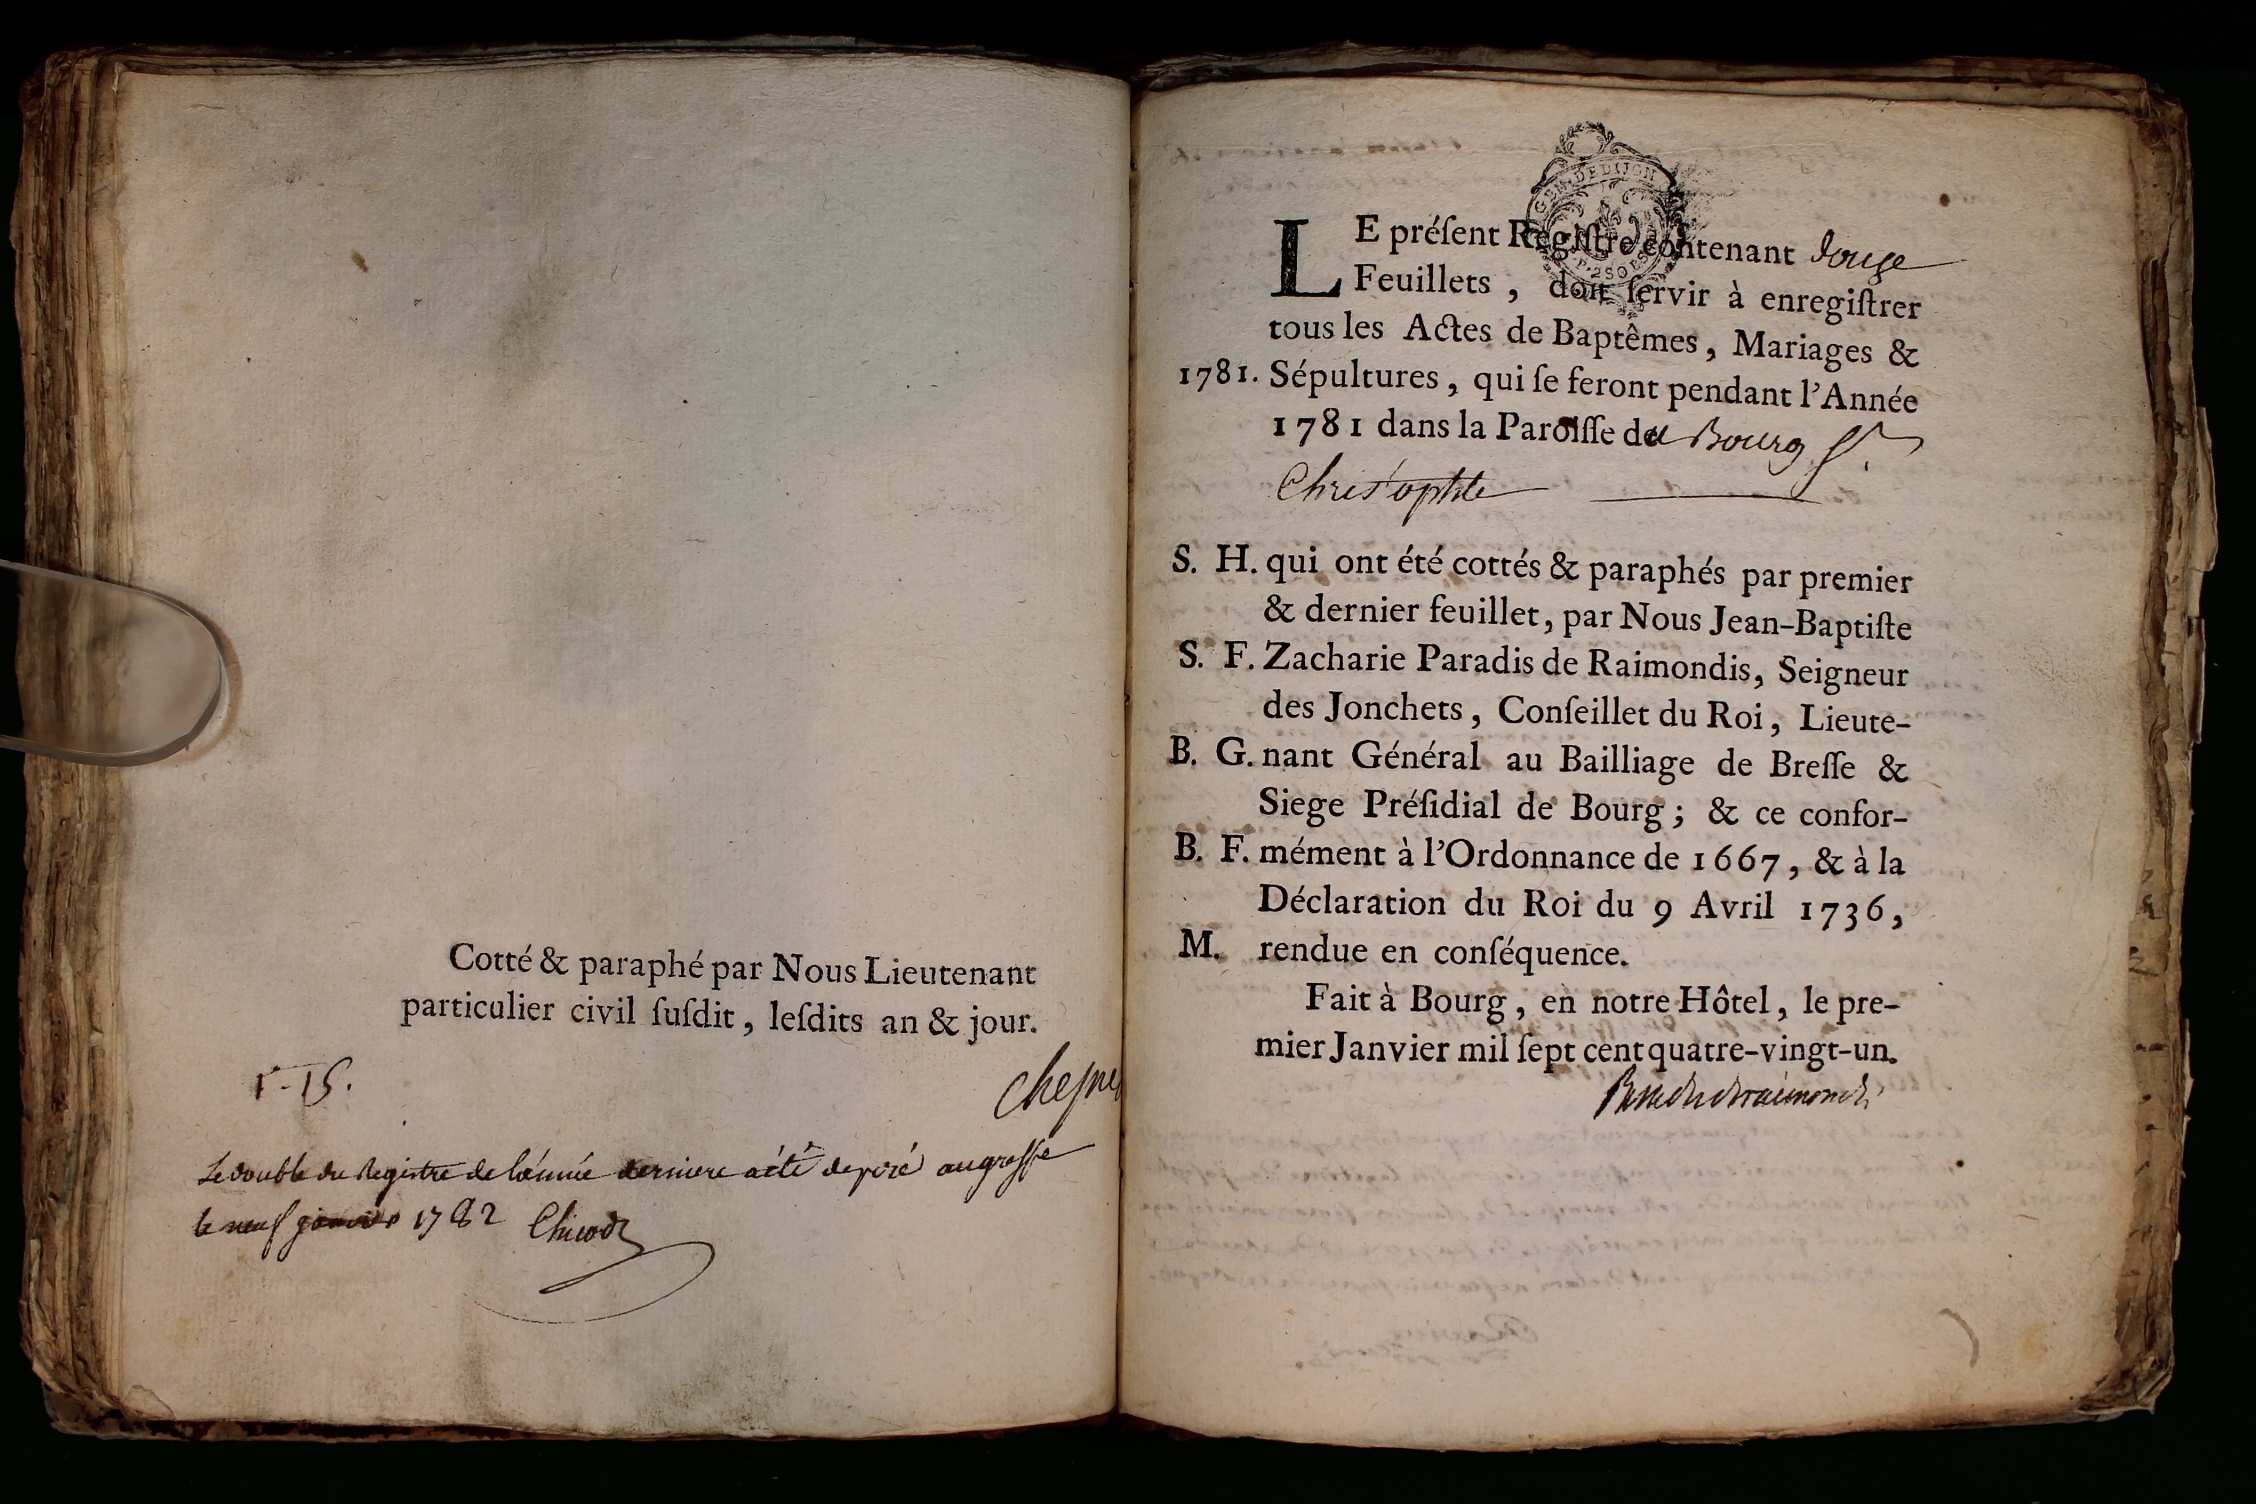 Cotté & paraphé par Nous Lieutenant
particulier civil ſuſdit, leſdits an & jour.
Le double du Registre de l'année derniere a été deposé au greffe
le neuf janvier 1782 Chicod
GEN. DE DIJON
P. 2 SO
LE préſent Regiſtre contenant douze
Feuillets, doit ſervir à enregiſtrer
tous les Actes de Baptêmes, Mariages &
1781. Sépultures, qui ſe feront pendant l'Année
1781 dans la Paroiſſe de Bourg St
Christophle
S. H. qui ont été cottés & paraphés par premier
& dernier feuillet, par Nous Jean-Baptiſte
S. F. Zacharie Paradis de Raimondis, Seigneur
des Jonchets, Conſeillet du Roi, Lieute-
B. G. nant Général au Bailliage de Breſſe &
Siege Préſidial de Bourg; & ce confor-
B. F. mément à l'Ordonnance de 1667, & à la
Déclaration du Roi du 9 Avril 1736,
M. rendue en conſéquence.
Fait à Bourg, en notre Hôtel, le pre-
mier Janvier mil ſept cent quatre-vingt-un.